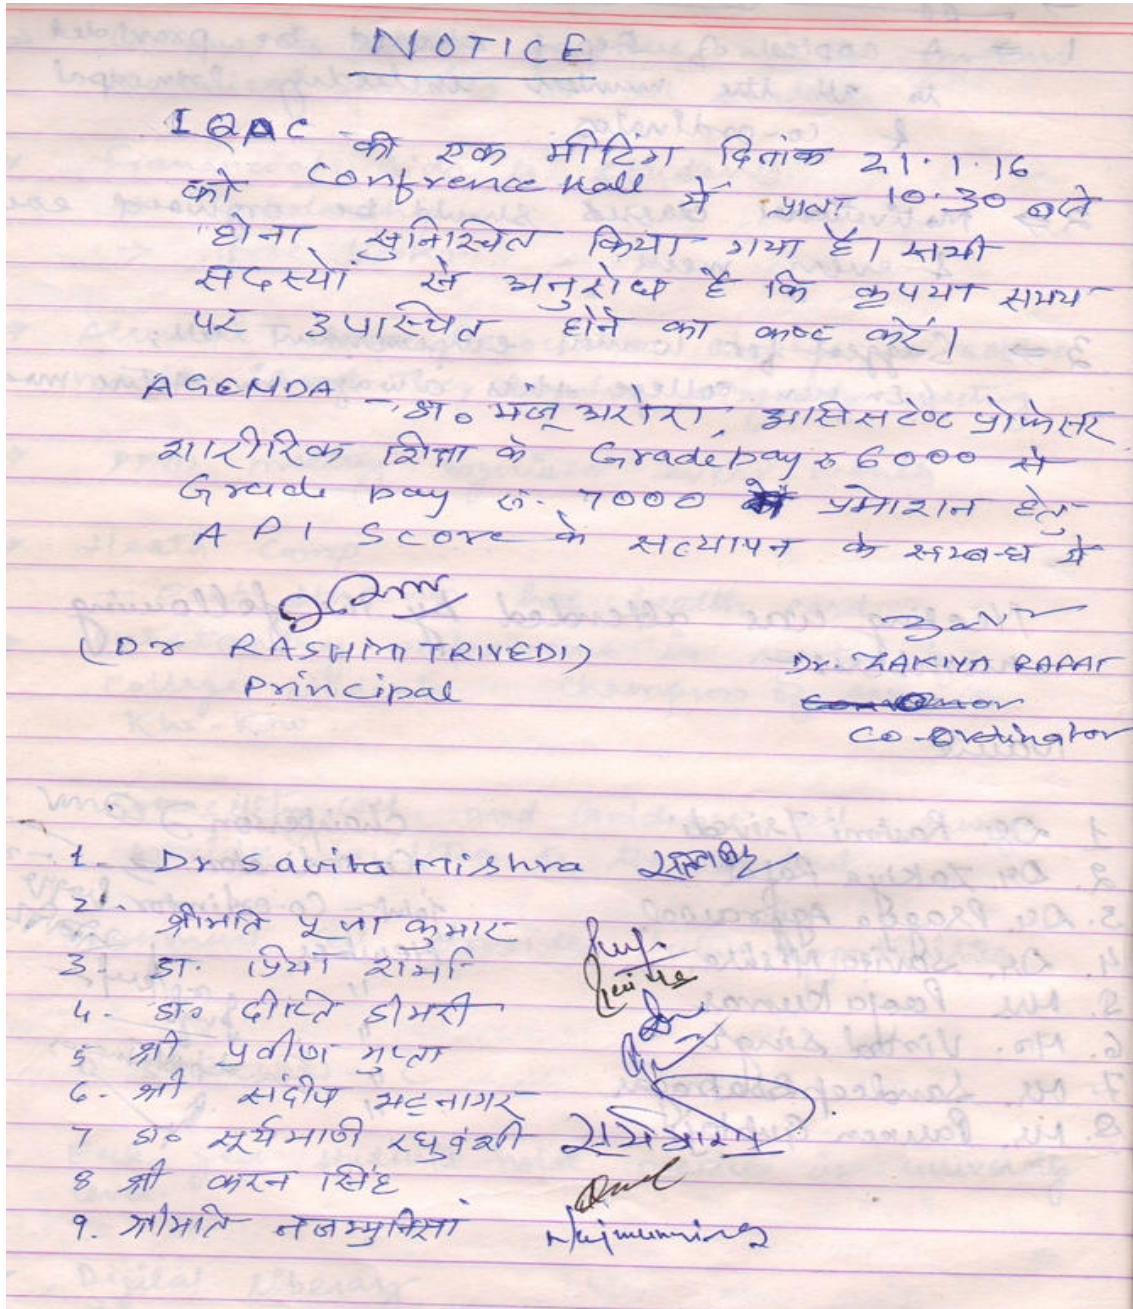 NOTICE
IQAC - की एक मीटिंग दिनांक 21.1.16
को Confrence Hall में प्रातः 10.30 बजे
होना सुनिश्चित किया गया है। सभी
सदस्यों से अनुरोध है कि कृपया समय
पर उपस्थित होने का कष्ट करें।
AGENDA - डा० मंजू अरोरा, आसिसटेण्ट प्रोफेसर
शारीरिक शिक्षा के Grade pay रु 6000 से
Grade pay रु. 7000 प्रमोशन हेतु
API Score के सत्यापन के सम्बन्ध में
(Dr RASHMI TRIVEDI)
Principal
Dr. ZAKIYA RAFAT
Co-ordinator
1. Dr Savita Mishra
2. श्रीमति पूजा कुमार
3. डा. प्रिया शर्मा
4. डा० दीप्ति डीमरी
5 श्री प्रवीण गुप्ता
6. श्री संदीप भटनागर
7 डा० सूर्यमाणी रघुवंशी
8 श्री करन सिंह
9. श्रीमति नजममुनिसा Najmunnisa